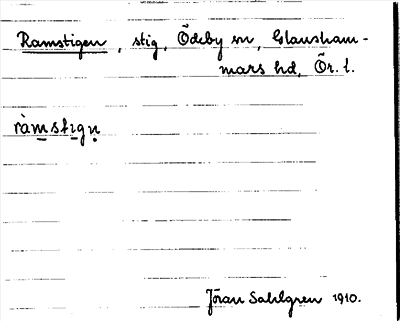 Ramstigen, stig, Ödeby sn, Glansham-
mars hd, Ör. l.
ràmstigṇ
Jöran Sahlgren 1910.